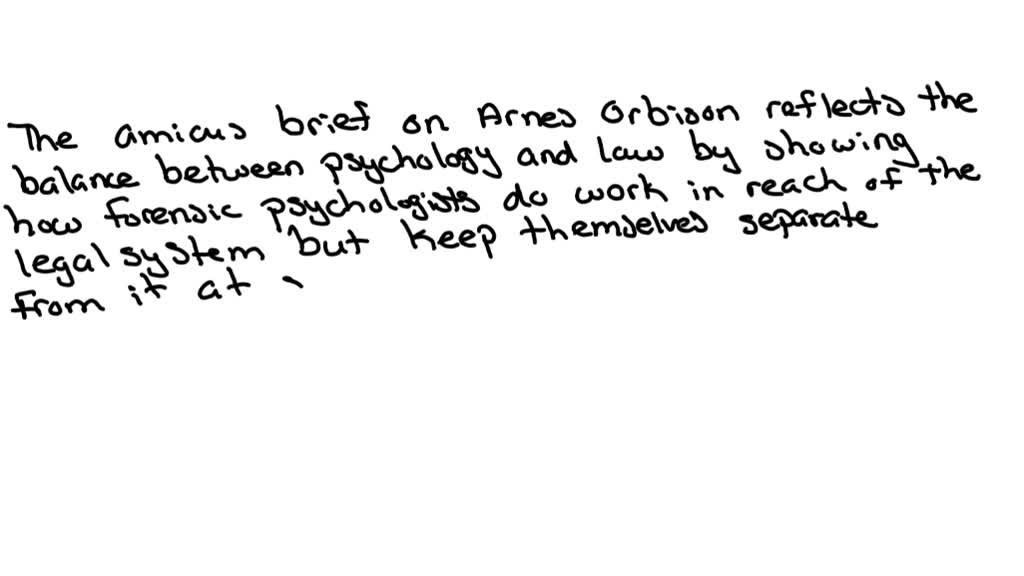 The amicus brief on Arnes Orbison reflects the
balance between psychology and law by showing
how forensic psychologists do work in reach of the
legal system but keep themselves separate
from it at